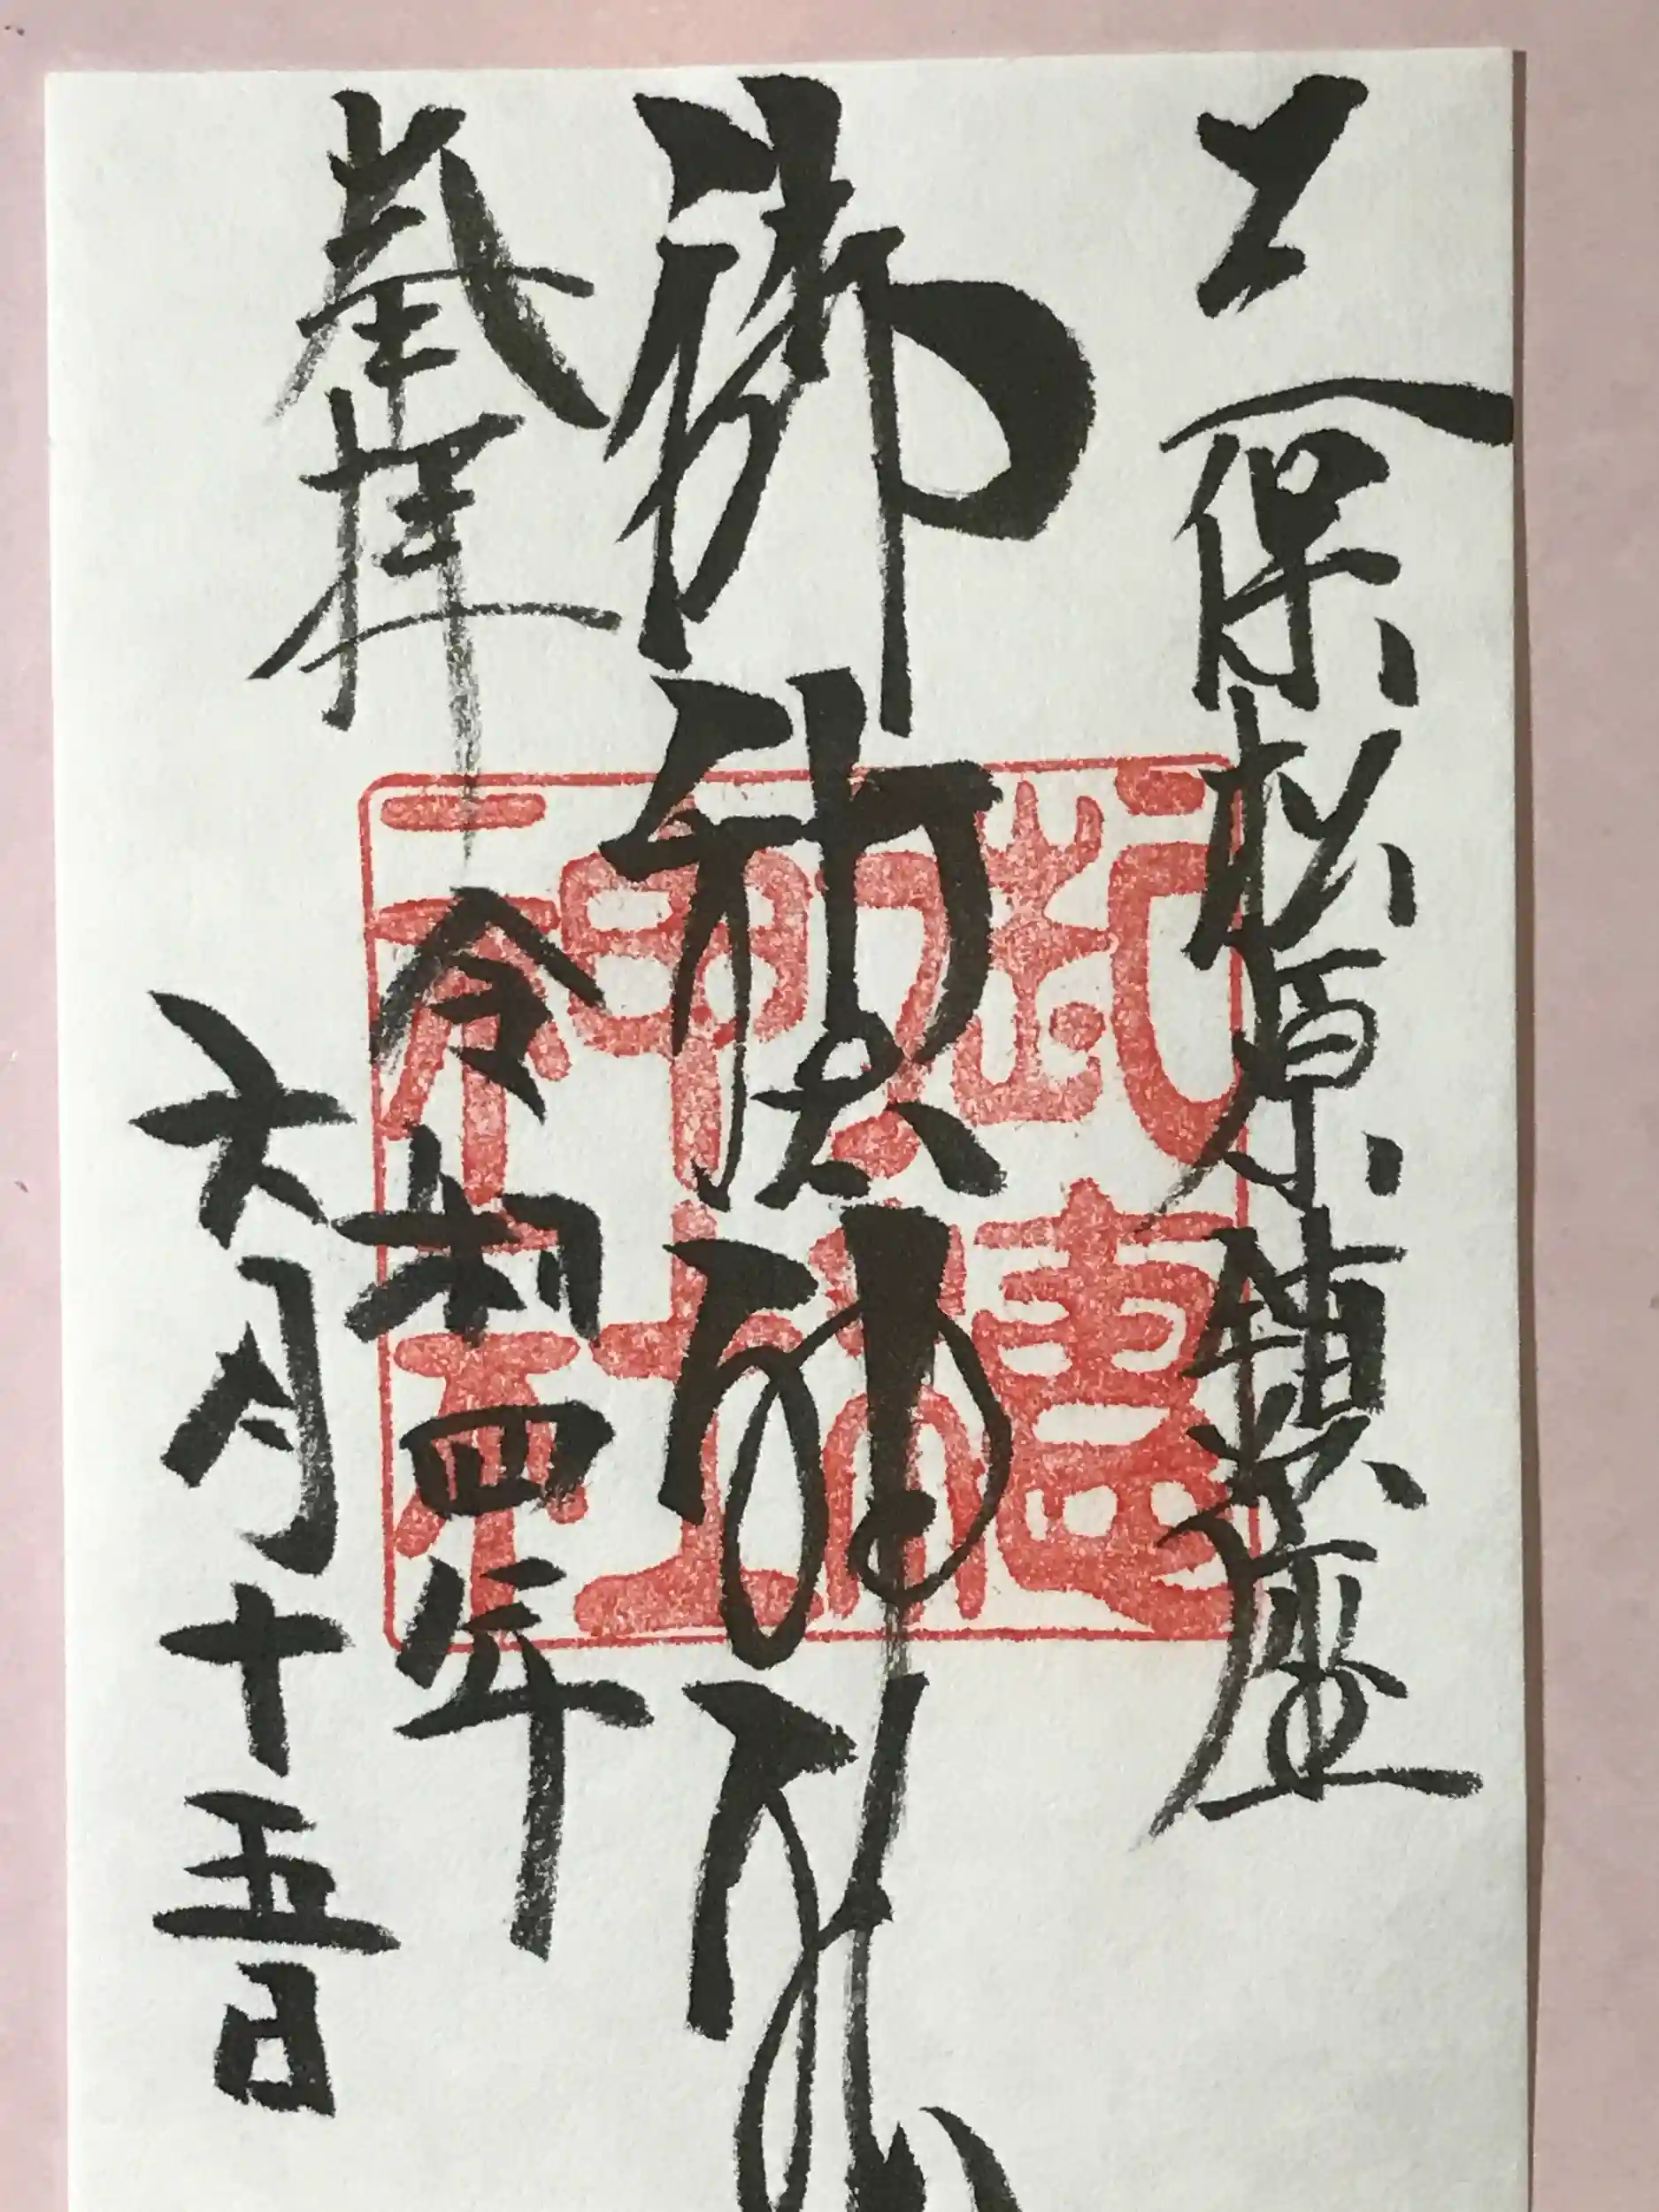 三保松原鎮座
御穂神社
奉拝
令和四年
六月十五日